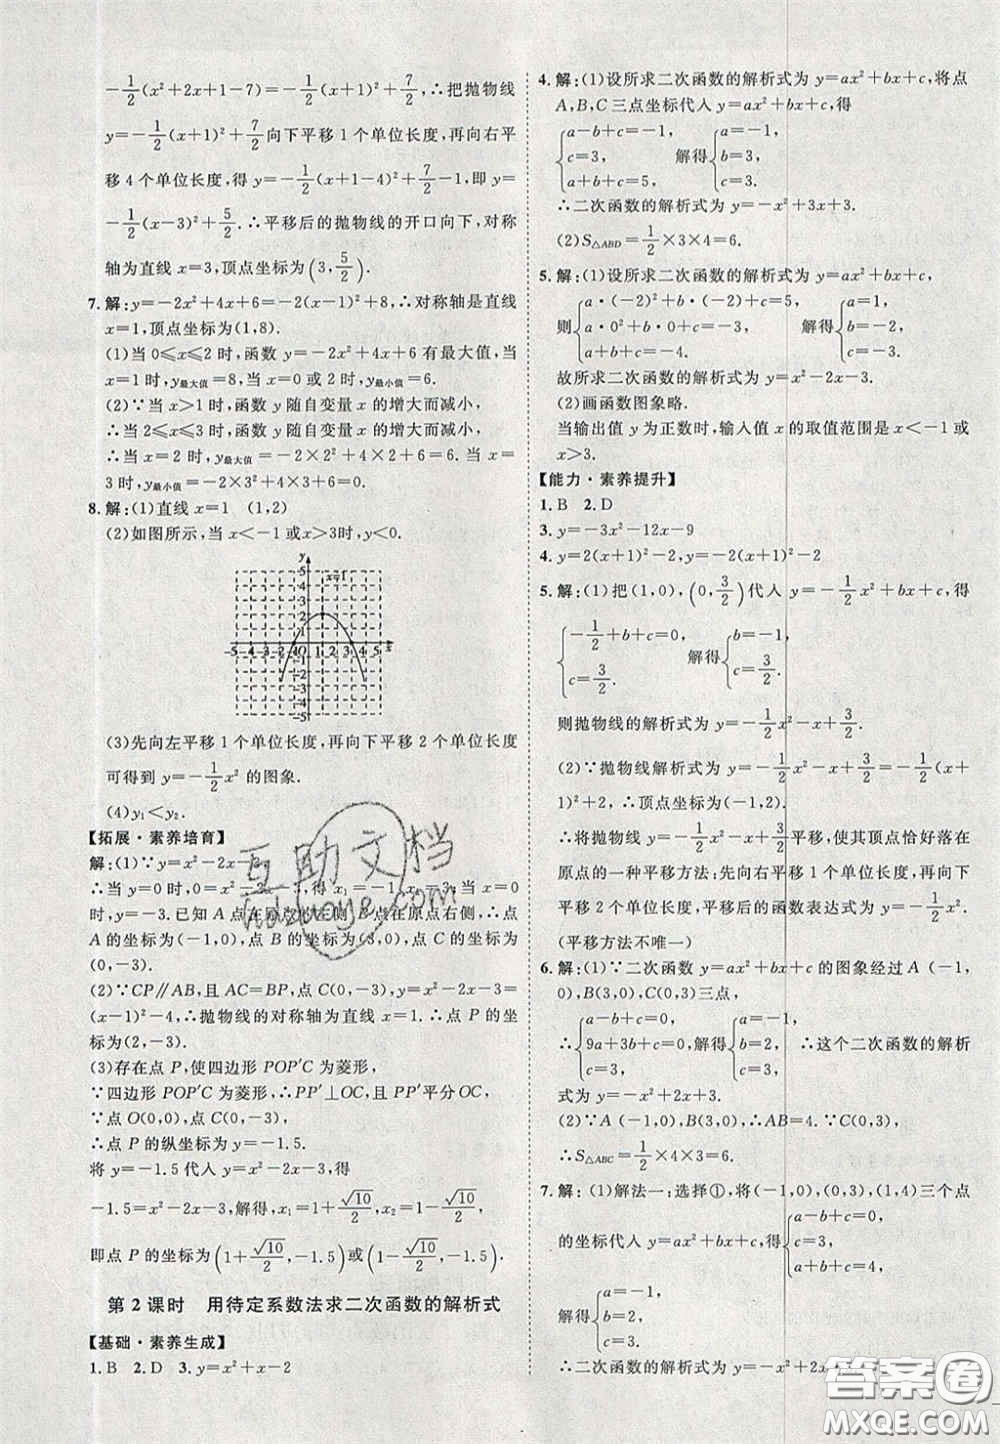 -1/2(x²+2x+1-7)=-1/2(x+1)²+7/2,∴把抛物线
y=-1/2(x+1)²+7/2向下平移1个单位长度,再向右平
移4个单位长度,得y=-1/2(x+1-4)²+7/2-1,即y=
-1/2(x-3)²+5/2.∴平移后的抛物线的开口向下,对称
轴为直线x=3,顶点坐标为(3,5/2).
7.解:y=-2x²+4x+6=-2(x-1)²+8,∴对称轴是直线
x=1,顶点坐标为(1,8).
(1)当0≤x≤2时,函数y=-2x²+4x+6有最大值,当
x=1时,y最大值=8,当x=0或2时,y最小值=6.
(2)∵当x>1时,函数y随自变量x的增大而减小,
∴当2≤x≤3时,函数y随自变量x的增大而减小,
∴当x=2时,y最大值=-2×2²+4×2+6=6,当
x=3时,y最小值=-2×3²+4×3+6=0.
8.解:(1)直线x=1 (1,2)
(2)如图所示,当x<-1或x>3时,y<0.
y
5
4
3
2
1
x=1
-5-4-3-2-1O 1 2 3 4 5 x
-1
-2
-3
-4
-5
(3)先向左平移1个单位长度,再向下平移2个单位长度
可得到y=-1/2x²的图象.
(4)y₁<y₂.
【拓展·素养培育】
解:(1)∵y=x²-2x-3,
∴当y=0时,0=x²-2x-3,得x₁=-1,x₂=3,当x=0时,
y=-3.已知A点在原点左侧,B点在原点右侧,∴点
A的坐标为(-1,0),点B的坐标为(3,0),点C的坐标为
(0,-3).
(2)∵CP∥AB,且AC=BP,点C(0,-3),y=x²-2x-3=
(x-1)²-4,∴抛物线的对称轴为直线x=1.∴点P的坐标为
(2,-3).
(3)存在点P,使四边形POP′C为菱形,
∵四边形POP′C为菱形,∴PP′⊥OC,且PP′平分OC,
∵点O(0,0),点C(0,-3),
∴点P的纵坐标为y=-1.5.
将y=-1.5代入y=x²-2x-3,得
-1.5=x²-2x-3,解得,x₁=1+√10/2,x₂=1-√10/2,
即点P的坐标为(1+√10/2,-1.5)或(1-√10/2,-1.5).
第2课时 用待定系数法求二次函数的解析式
【基础·素养生成】
1.B 2.D 3.y=x²+x-2
4.解:(1)设所求二次函数的解析式为y=ax²+bx+c,将点
A,B,C三点坐标代入y=ax²+bx+c,得
{a-b+c=-1, {a=-1,
c=3, 解得 b=3,
a+b+c=5, c=3.
∴二次函数的解析式为y=-x²+3x+3.
(2)S△ABD=1/2×3×4=6.
5.解:(1)设所求二次函数的解析式为y=ax²+bx+c,
{a·(-2)²+b·(-2)+c=5, {a=1,
则 a·0²+b·0+c=-3, 解得 b=-2,
a+b+c=-4. c=-3.
故所求二次函数的解析式为y=x²-2x-3.
(2)画函数图象略.
当输出值y为正数时,输入值x的取值范围是x<-1或
x>3.
【能力·素养提升】
1.B 2.D
3.y=-3x²-12x-9
4.y=2(x+1)²-2,y=-2(x-1)²-2
5.解:(1)把(1,0),(0,3/2)代入y=-1/2x²+bx+c,得
{-1/2+b+c=0, {b=-1,
c=3/2. 解得 c=3/2.
则抛物线的解析式为y=-1/2x²-x+3/2.
(2)∵抛物线解析式为y=-1/2x²-x+3/2=-1/2(x+
1)²+2,∴顶点坐标为(-1,2).
∴将抛物线y=-1/2x²-x+3/2平移,使其顶点恰好落在
原点的一种平移方法:先向右平移1个单位长度,再向下
平移2个单位长度,平移后的函数表达式为y=-1/2x².
(平移方法不唯一)
6.解:(1)∵二次函数y=ax²+bx+c的图象经过A(-1,
0),B(3,0),C(0,3)三点,
{a-b+c=0, {a=-1,
∴ 9a+3b+c=0,解得 b=2, ∴这个二次函数的解析
c=3, c=3.
式为y=-x²+2x+3.
(2)∵A(-1,0),B(3,0),∴AB=4.
∴S△ABC=1/2×4×3=6.
7.解:(1)解法一:选择①,将(-1,0),(0,3),(1,4)三个点
的坐标代入y=ax²+bx+c,得{a-b+c=0,
c=3,
a+b+c=4,
解得{a=-1,
b=2,
c=3.
∴二次函数的解析式为y=-x²+2x+3.
互助文档
hdzuoye.com
答案卷
MXQE.COM